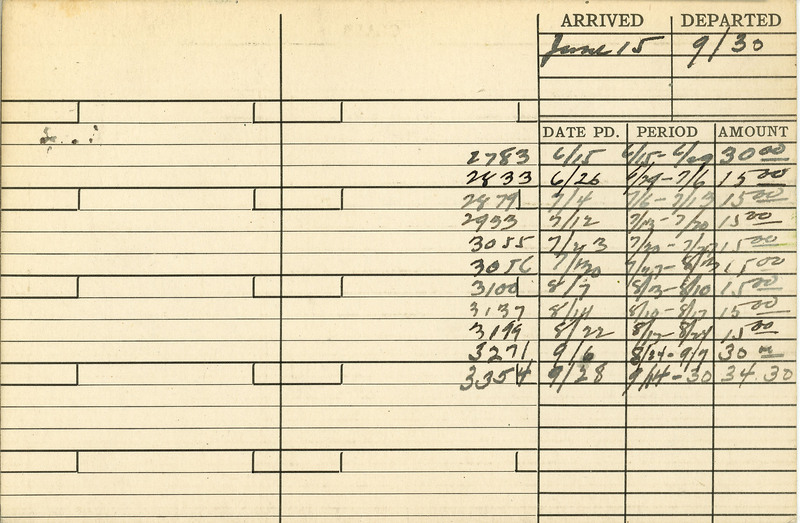 ARRIVED DEPARTED
June 15 9/30
DATE PD. PERIOD AMOUNT
2783 6/15 6/15-6/29 30 00
2833 6/26 6/29-7/6 15 00
2879 7/4 7/6-7/13 15 00
2933 7/12 7/13-7/20 15 00
3055 7/23 7/20-7/27 15 00
3056 7/30 7/27-8/3 15 00
3100 8/7 8/3-8/10 15 00
3137 8/14 8/10-8/17 15 00
3199 8/22 8/17-8/24 15 00
3271 9/6 8/24-9/7 30 00
3354 9/28 9/14-30 34.30